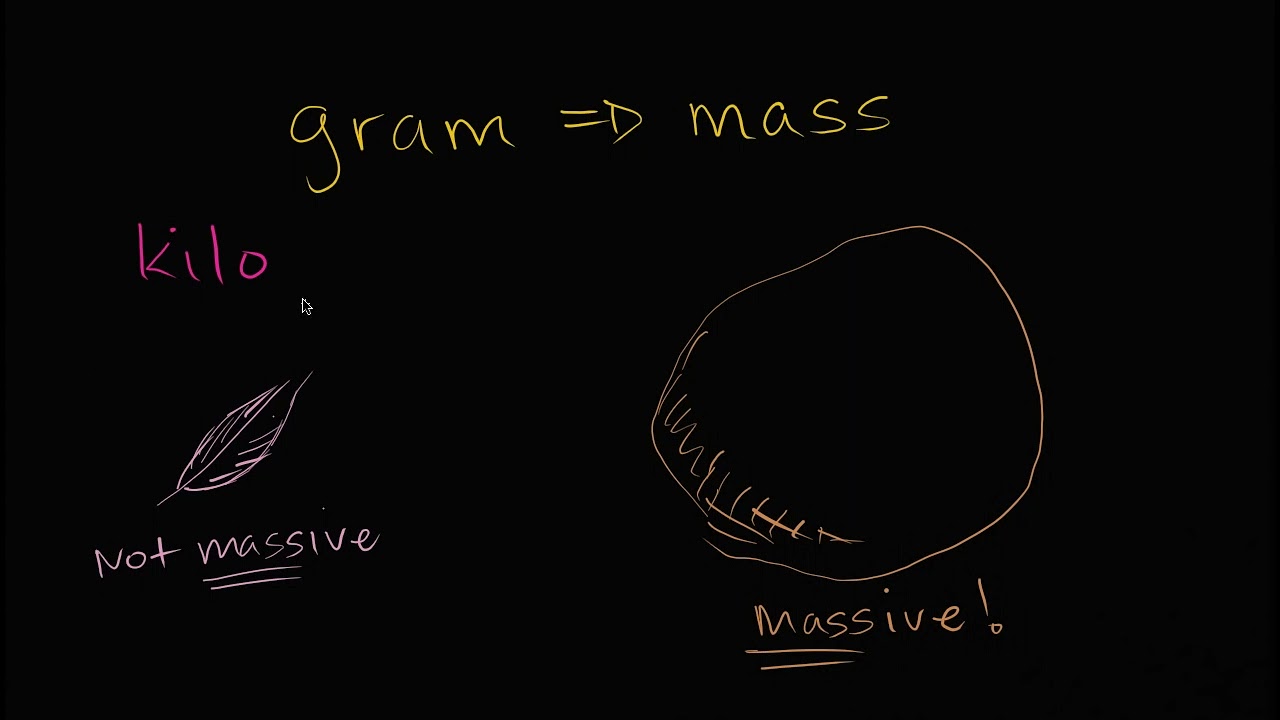 gram ⇒ mass
kilo
Not massive
massive!